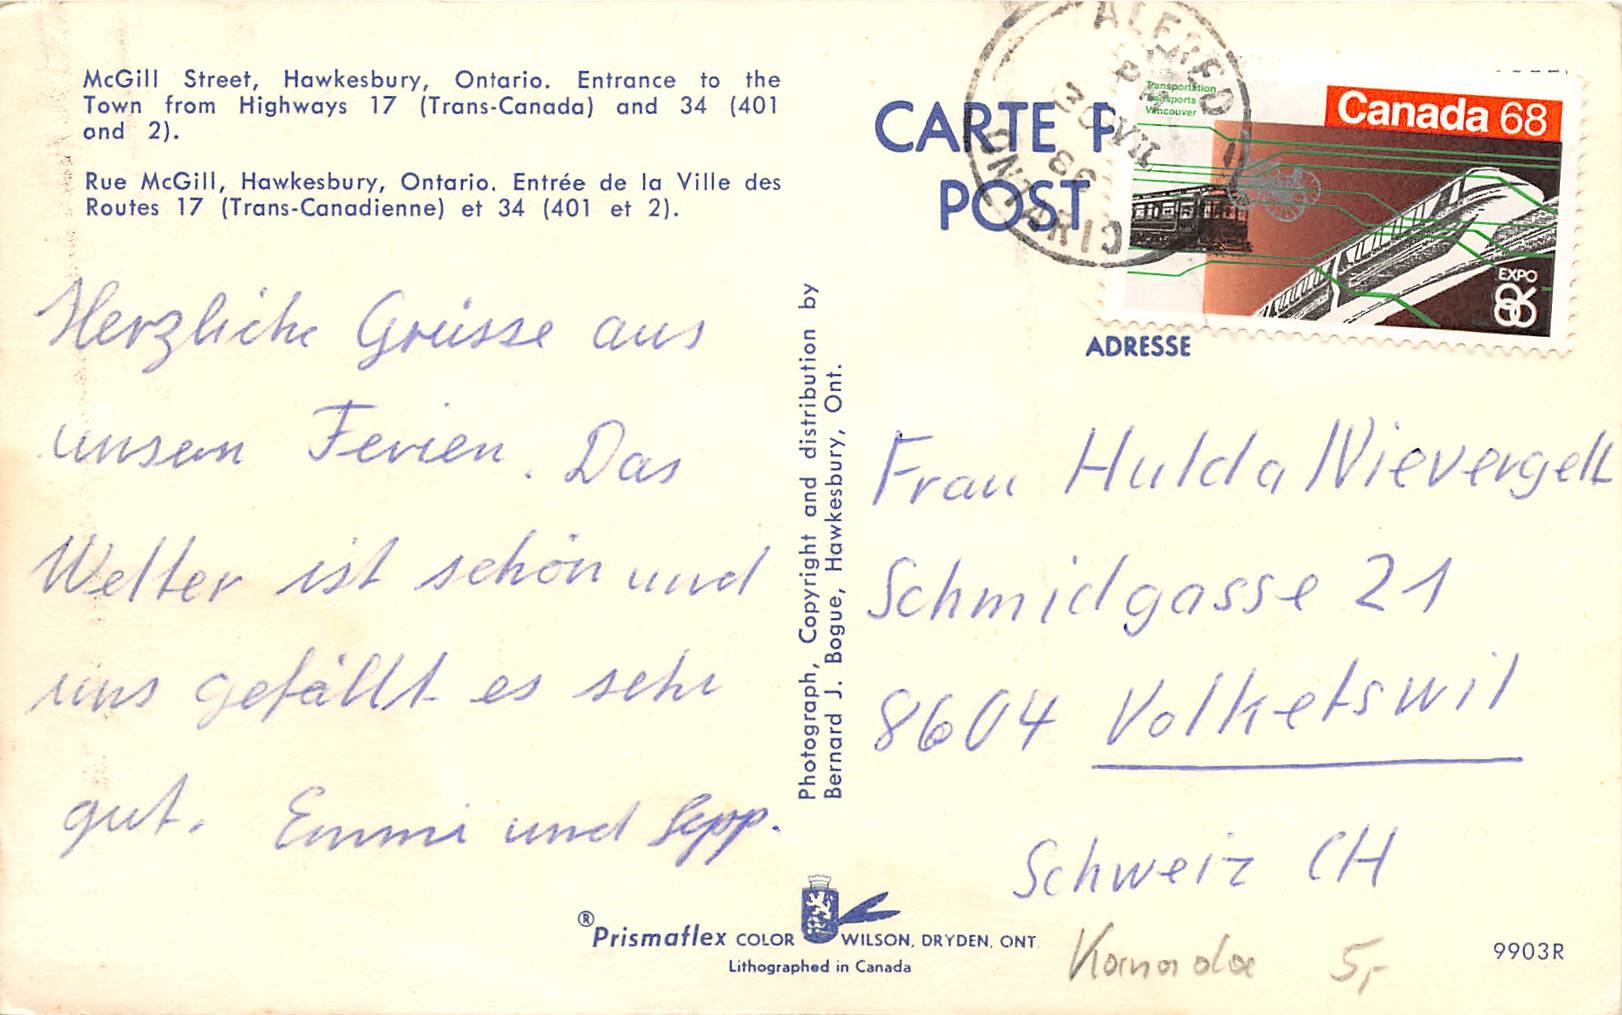 McGill Street, Hawkesbury, Ontario. Entrance to the
Town from Highways 17 (Trans-Canada) and 34 (401
and 2).
Rue McGill, Hawkesbury, Ontario. Entrée de la Ville des
Routes 17 (Trans-Canadienne) et 34 (401 et 2).
Herzliche Grüsse aus
unsern Ferien. Das
Wetter ist schön und
uns gefällt es sehr
gut. Emmi und Sepp.
Photograph, Copyright and distribution by
Bernard J. Bogue, Hawkesbury, Ont.
CARTE P
POST
ALFRED
PM
30 VII
86
ONTARIO
Transportation
Transports
Vancouver
Canada 68
EXPO
86
ADRESSE
Frau Hulda Nievergelt
Schmidgasse 21
8604 Volketswil
Schweiz CH
Kanada 5,-
® Prismaflex COLOR WILSON, DRYDEN, ONT.
Lithographed in Canada
9903R